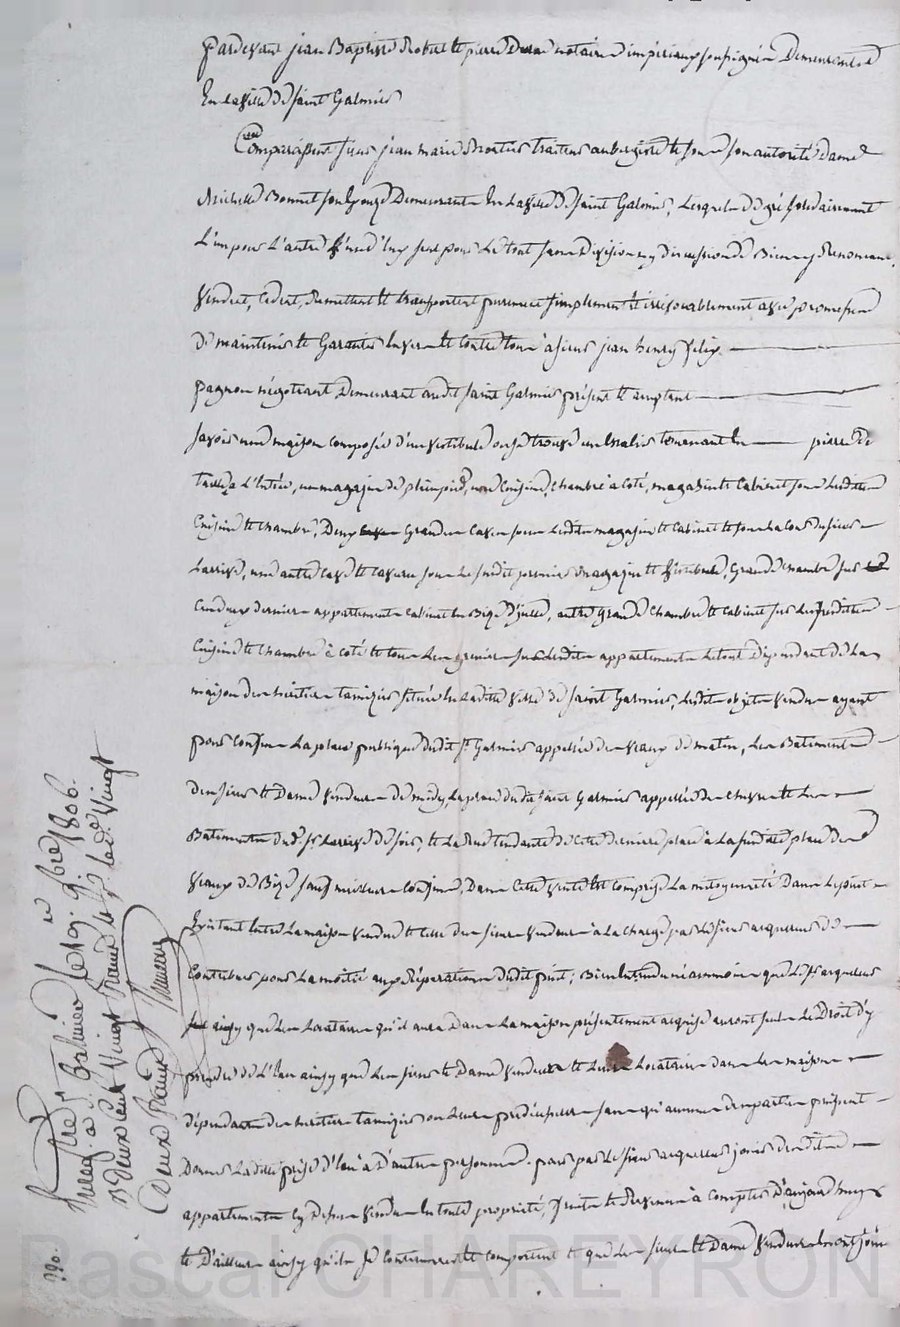 Pardevant jean Baptiste et pierre notaires impériaux soussignés Demeurants
En la ville de saint Galmier
Comparaissent sieur jean marie traiteur aubergiste et sous son autorité Dame
Michelle Bonnet son Epouze Demeurants En la ville de saint Galmier, Lesquels de gré solidairement
L'un pour L'autre d'Eux seul pour Le tout sans Division ny discussion de Biens y Renoncant,
Vendent, Cedent, Remettent et transportent purement simplement et irrévocablement avec promesse
De maintenir et Garantir Envers et Contre tous à sieur jean henry felix
pagnon négotiant Demeurant audit saint Galmier présent et aceptant
savoir une maison composée d'un vestibule ou se trouve un Escalier tournant En pierre de
taille à L'Entrée, un magazin de plein pied, une Cuisine, chambre à coté, magazin et Cabinet sous Lesdittes
Cuisine et chambre, Deux Grandes Caves sous Lesdits magazin et Cabinet et sous La Cour du sieur
Larrivé, une autre Cave et Caveau sous Le susdit premier magazin et Vestibule, Grande chambre sur
Ces deux derniers appartements Cabinet En Bize d'icelle, autre grande chambre et Cabinet sur Les susdittes
Cuisine et chambre à coté et tous Les greniers sur Lesdits appartements Le tout Dépendant de La
maison des héritiers tamizier située En Laditte ville de saint Galmier, Lesdits objets Vendus ayant
pour Confins La place publique dudit St Galmier appellée des Veaux de matin, Les Batiments
des sieur et Dame Vendeurs de midy, La place dudit saint Galmier appellée des et Les
Batiments dud. Sr Larrivé de soir, et La Rue tendante de Cette dernière place à La susditte place des
Veaux de Bize sauf meilleurs Confins, Dans Cette Vente Est Comprise La mitoyenneté Dans Le puit
Existant Entre La maison Vendue et Celle des sieurs Vendeurs à La charge par Le sieur acquereur de
Contribuer pour La moitié aux Réparations Dudit puit; Bien Entendu néanmoins que Le Sr acquereur
ainsy que Les Locataires qu'il aura Dans La maison présentement acquise auront seuls Le Droit d'y
prendre de L'Eau ainsy que Les sieur et Dame Vendeurs et Leurs Locataires dans Les maisons
dépendantes des héritiers tamizier ou Leurs prédécesseurs sans qu'aucunes des parties puissent
Donner Laditte prise d'Eau à D'autres personnes. pour par Le sieur acquereur jouir desdits
appartements Cy Dessus Vendus En toute propriété, fruits et Revenus à Compter D'aujourd'huy
et D'ailleurs ainsy qu'ils se Contiennent et Comportent et que Les sieur et Dame Vendeurs En ont joui
Enregtré à St Galmier Le 19. 9bre 1806.
Deux Cent Vingt francs et Le de Vingt
Deux francs
220.
Pascal CHAREYRON